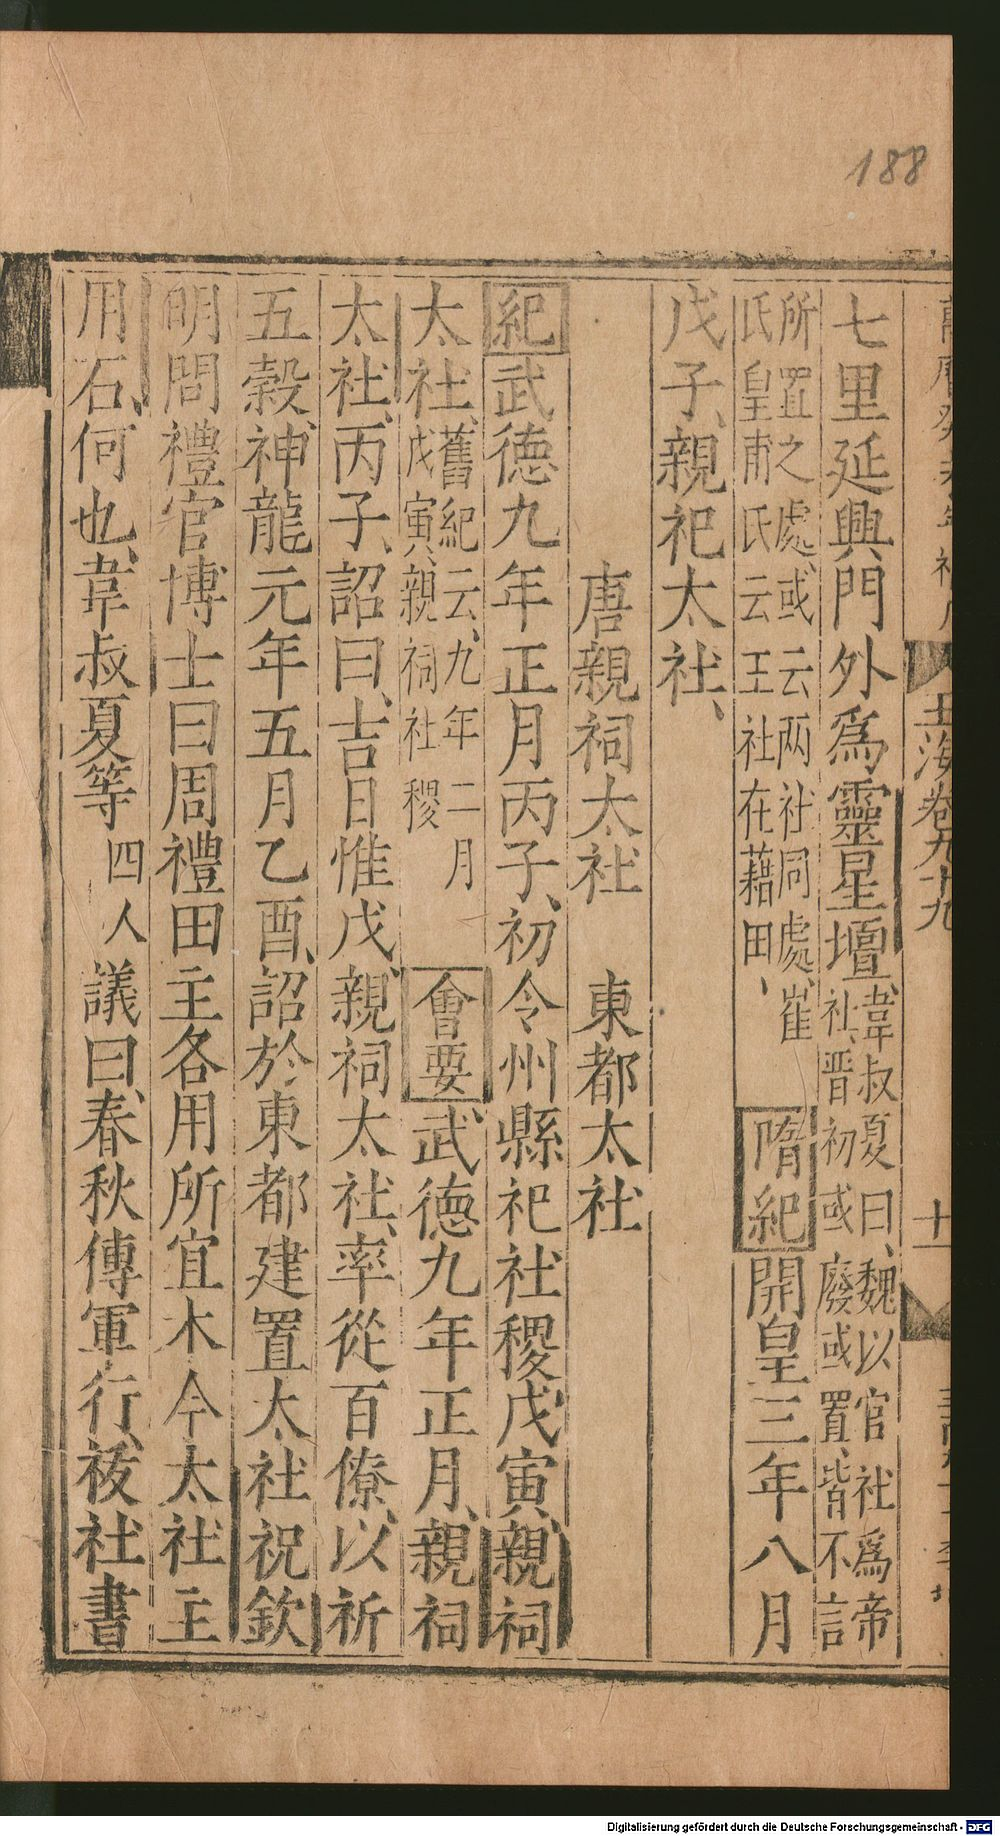 188
玉海卷九十九
十一
七里延興門外為靈星壇韋叔夏曰魏以官社為帝社晋初或廢或置皆不言
所置之處或云两社同處崔氏皇甫氏云王社在藉田 隋紀開皇三年八月
戊子親祀太社
唐親祠太社 東都太社
紀武德九年正月丙子初令州縣祀社稷戊寅親祠
太社舊紀云九年二月戊寅親祠社稷 會要武德九年正月親祠
太社丙子詔曰吉日惟戊親祠太社率從百僚以祈
五穀神龍元年五月乙酉詔於東都建置太社祝欽
明問禮官博士曰周禮田主各用所宜木今太社主
用石何也韋叔夏等四人議曰春秋傳軍行祓社釁
Digitalisierung gefördert durch die Deutsche Forschungsgemeinschaft - DFG